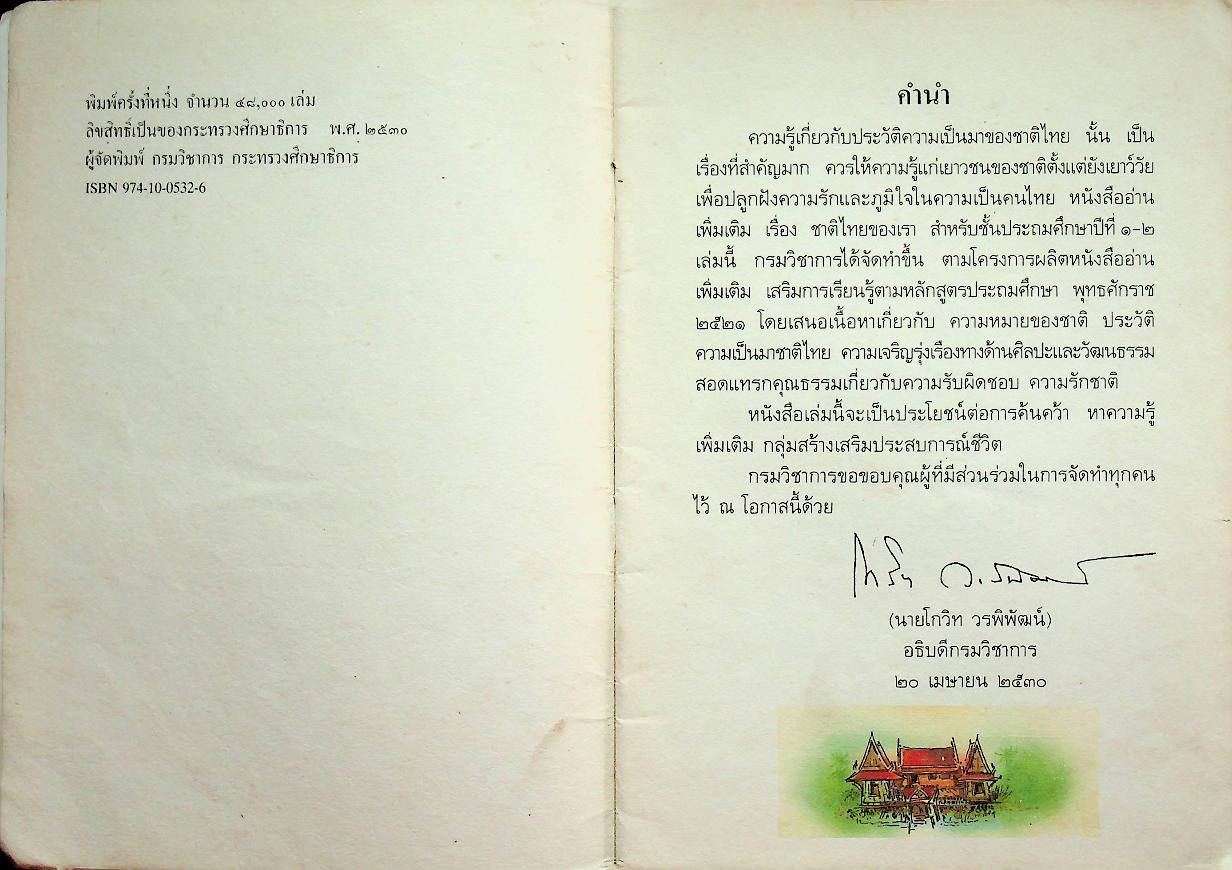 พิมพ์ครั้งที่หนึ่ง จำนวน ๔๘,๐๐๐ เล่ม
ลิขสิทธิ์เป็นของกระทรวงศึกษาธิการ พ.ศ. ๒๕๓๐
ผู้จัดพิมพ์ กรมวิชาการ กระทรวงศึกษาธิการ
ISBN 974-10-0532-6
คำนำ
ความรู้เกี่ยวกับประวัติความเป็นมาของชาติไทย นั้น เป็น
เรื่องที่สำคัญมาก ควรให้ความรู้แก่เยาวชนของชาติตั้งแต่ยังเยาว์วัย
เพื่อปลูกฝังความรักและภูมิใจในความเป็นคนไทย หนังสืออ่าน
เพิ่มเติม เรื่อง ชาติไทยของเรา สำหรับชั้นประถมศึกษาปีที่ ๑-๒
เล่มนี้ กรมวิชาการได้จัดทำขึ้น ตามโครงการผลิตหนังสืออ่าน
เพิ่มเติม เสริมการเรียนรู้ตามหลักสูตรประถมศึกษา พุทธศักราช
๒๕๒๑ โดยเสนอเนื้อหาเกี่ยวกับ ความหมายของชาติ ประวัติ
ความเป็นมาชาติไทย ความเจริญรุ่งเรืองทางด้านศิลปะและวัฒนธรรม
สอดแทรกคุณธรรมเกี่ยวกับความรับผิดชอบ ความรักชาติ
หนังสือเล่มนี้จะเป็นประโยชน์ต่อการค้นคว้า หาความรู้
เพิ่มเติม กลุ่มสร้างเสริมประสบการณ์ชีวิต
กรมวิชาการขอขอบคุณผู้ที่มีส่วนร่วมในการจัดทำทุกคน
ไว้ ณ โอกาสนี้ด้วย
(นายโกวิท วรพิพัฒน์)
อธิบดีกรมวิชาการ
๒๐ เมษายน ๒๕๓๐